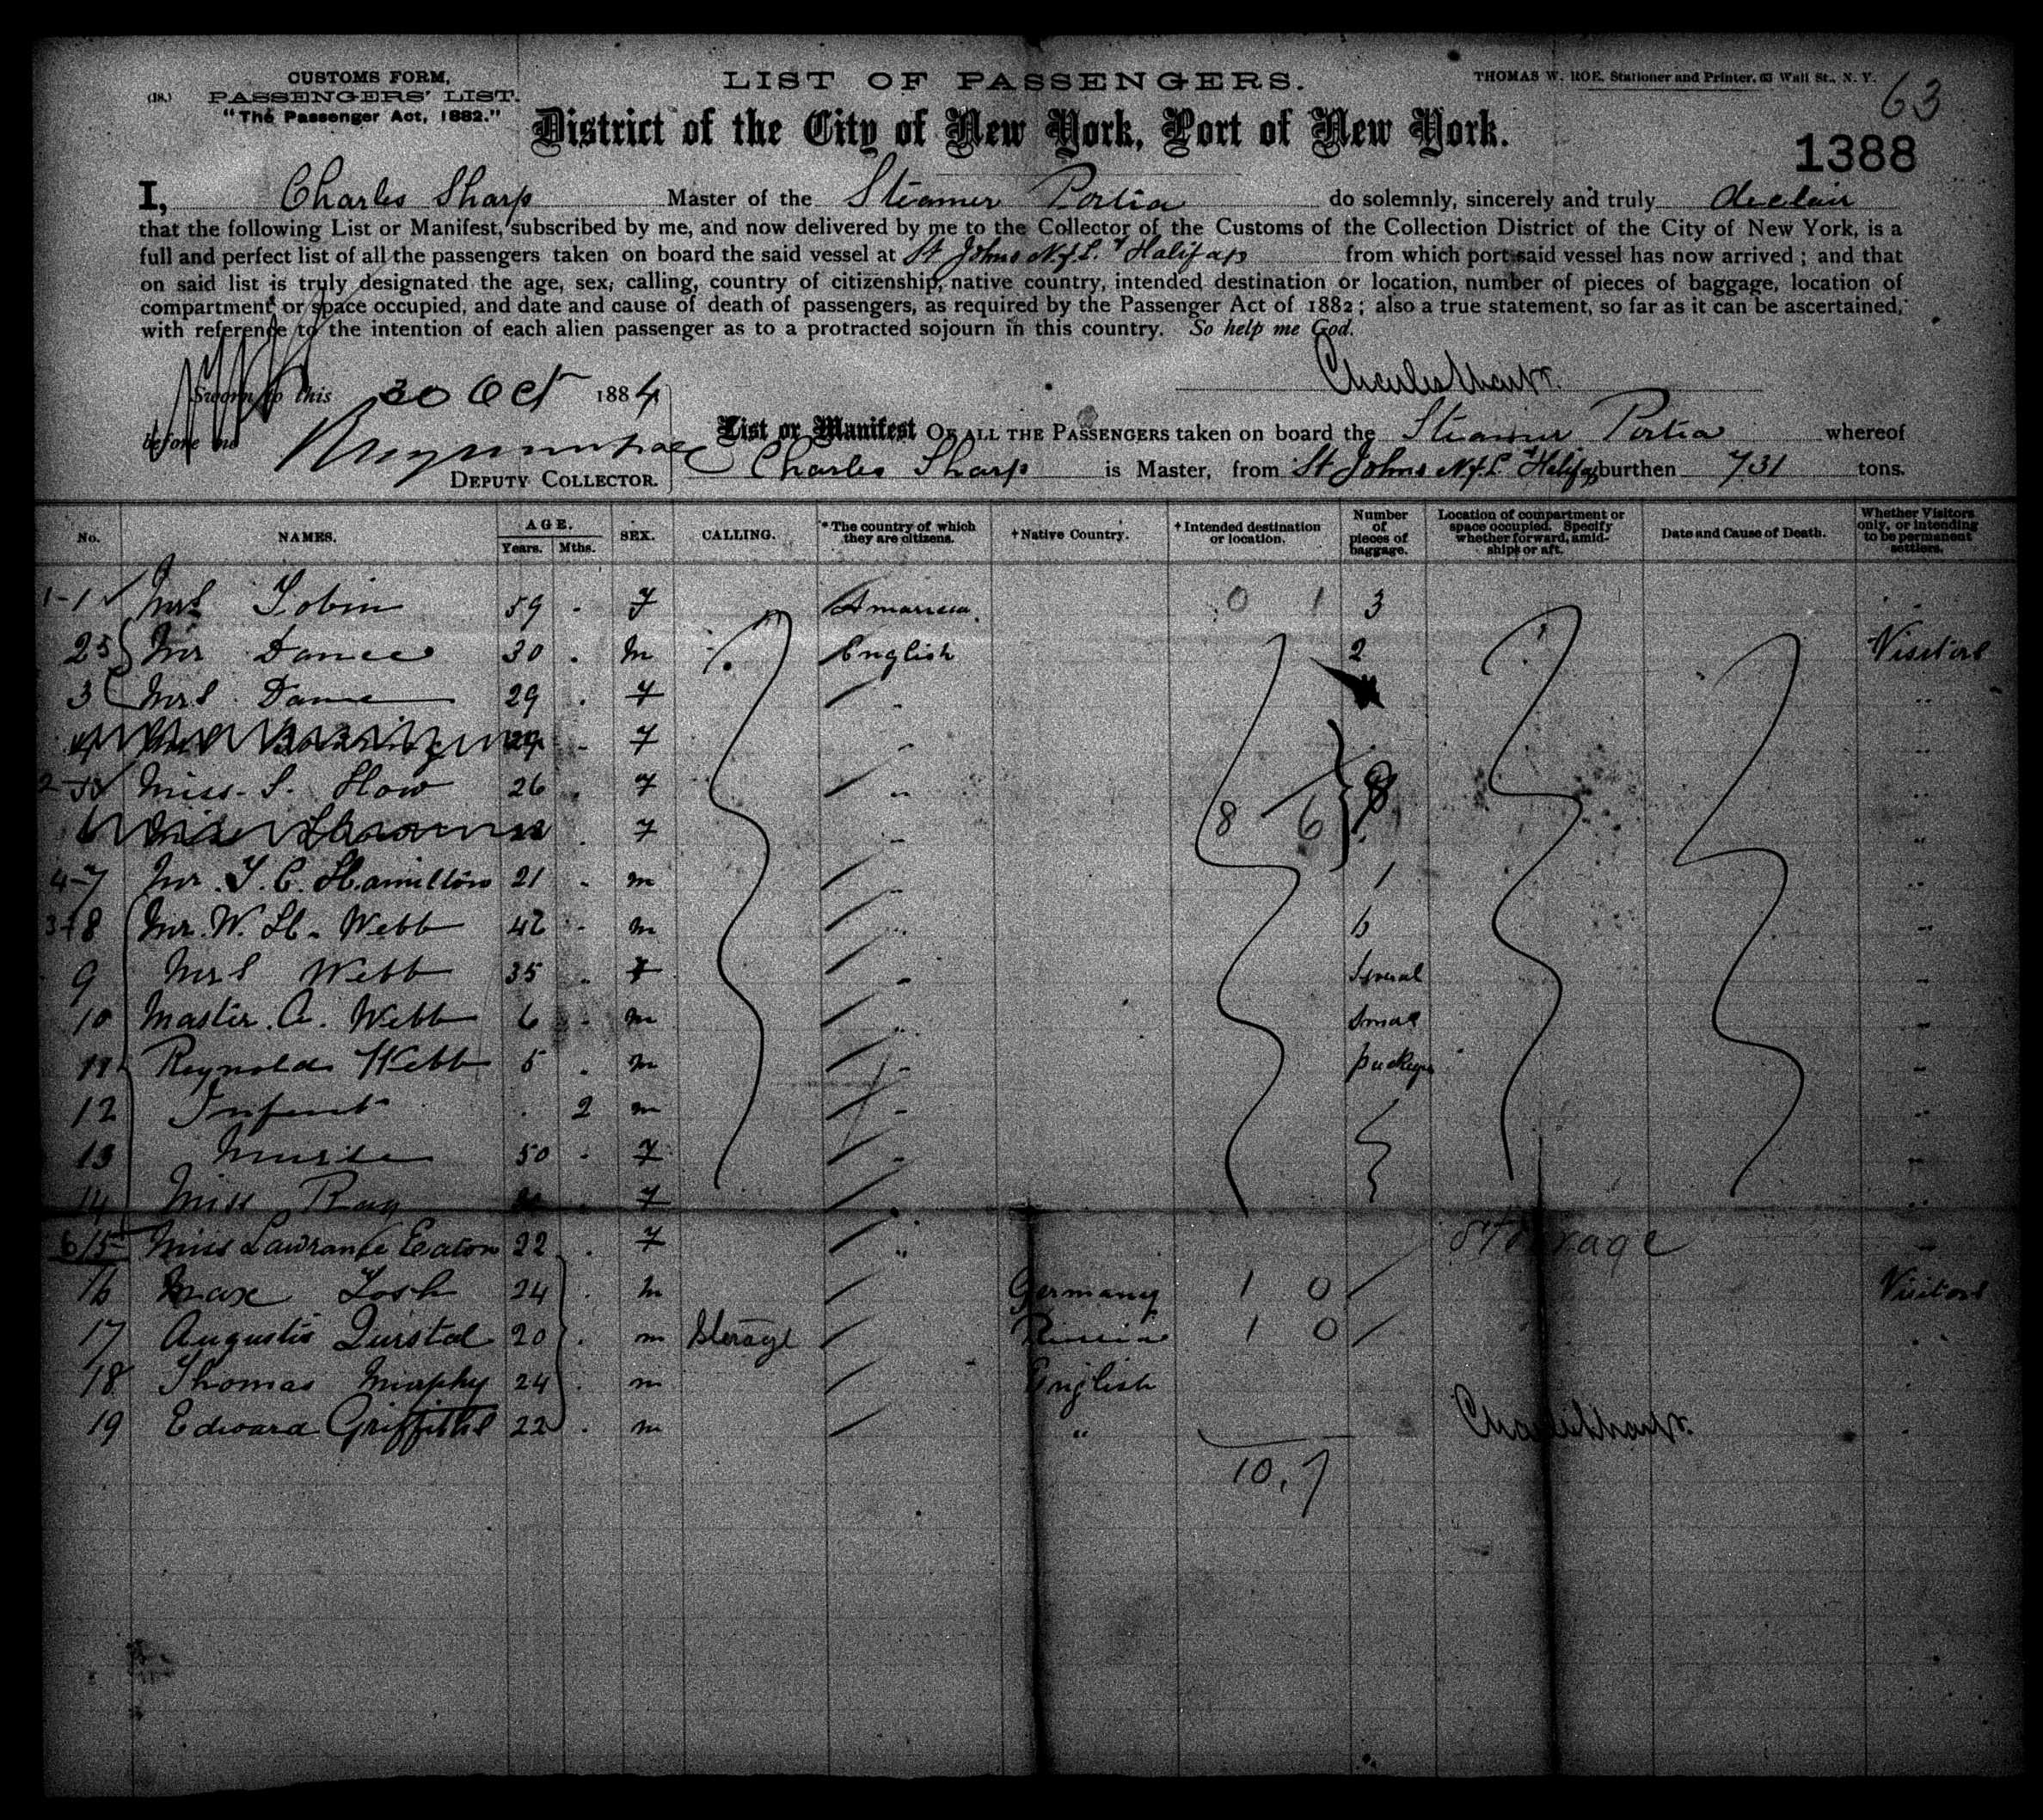 CUSTOMS FORM,
(18.) PASSENGERS' LIST.
"The Passenger Act, 1882."
LIST OF PASSENGERS.
THOMAS W. ROE, Stationer and Printer, 63 Wall St., N. Y.
63
District of the City of New York, Port of New York.
1388
I, Charles Sharp Master of the Steamer Portia do solemnly, sincerely and truly declair
that the following List or Manifest, subscribed by me, and now delivered by me to the Collector of the Customs of the Collection District of the City of New York, is a
full and perfect list of all the passengers taken on board the said vessel at St Johns N.f.L. & Halifax from which port said vessel has now arrived; and that
on said list is truly designated the age, sex, calling, country of citizenship, native country, intended destination or location, number of pieces of baggage, location of
compartment or space occupied, and date and cause of death of passengers, as required by the Passenger Act of 1882; also a true statement, so far as it can be ascertained,
with reference to the intention of each alien passenger as to a protracted sojourn in this country. So help me God.
Charles Sharp.
Sworn to this 30 Oct 1884
before me
DEPUTY COLLECTOR.
List or Manifest OF ALL THE PASSENGERS taken on board the Steamer Portia whereof
Charles Sharp is Master, from St Johns N.f.L. & Halifax burthen 731 tons.
No. NAMES. AGE. Years. Mths. SEX. CALLING. *The country of which they are citizens. †Native Country. †Intended destination or location. Number of pieces of baggage. Location of compartment or space occupied. Specify whether forward, amidships or aft. Date and Cause of Death. Whether Visitors only, or intending to be permanent settlers.
1-1 Mrs Tobin 59 . F America 0 1 3
2 Mr Dance 30 . M English 2 Visitors
3 Mrs Dance 29 . F " "
4 29 . F " "
5 Miss S. How 26 . F " 8 6 8 "
6 . F " "
4-7 Mr. T. C. Hamilton 21 . m " 1 "
8 Mr. W. H. Webb 42 . m " 6 "
9 Mrs Webb 35 . F " Several "
10 Master. A. Webb 6 . m " Smal "
11 Reynolds Webb 5 . m " packeges "
12 Infant . 2 m " "
13 Nurse 50 . F " "
14 Miss Ray F "
6/15 Miss Lawrance Eaton 22 . F " Storage "
16 Max Tosh 24 . m Germany 1 0 Visitors
17 Augustis Quistal 20 . m Sterage Russia 1 0 "
18 Thomas Murphy 24 . m English
19 Edward Griffiths 22 . m " Charles Sharp.
10. 7